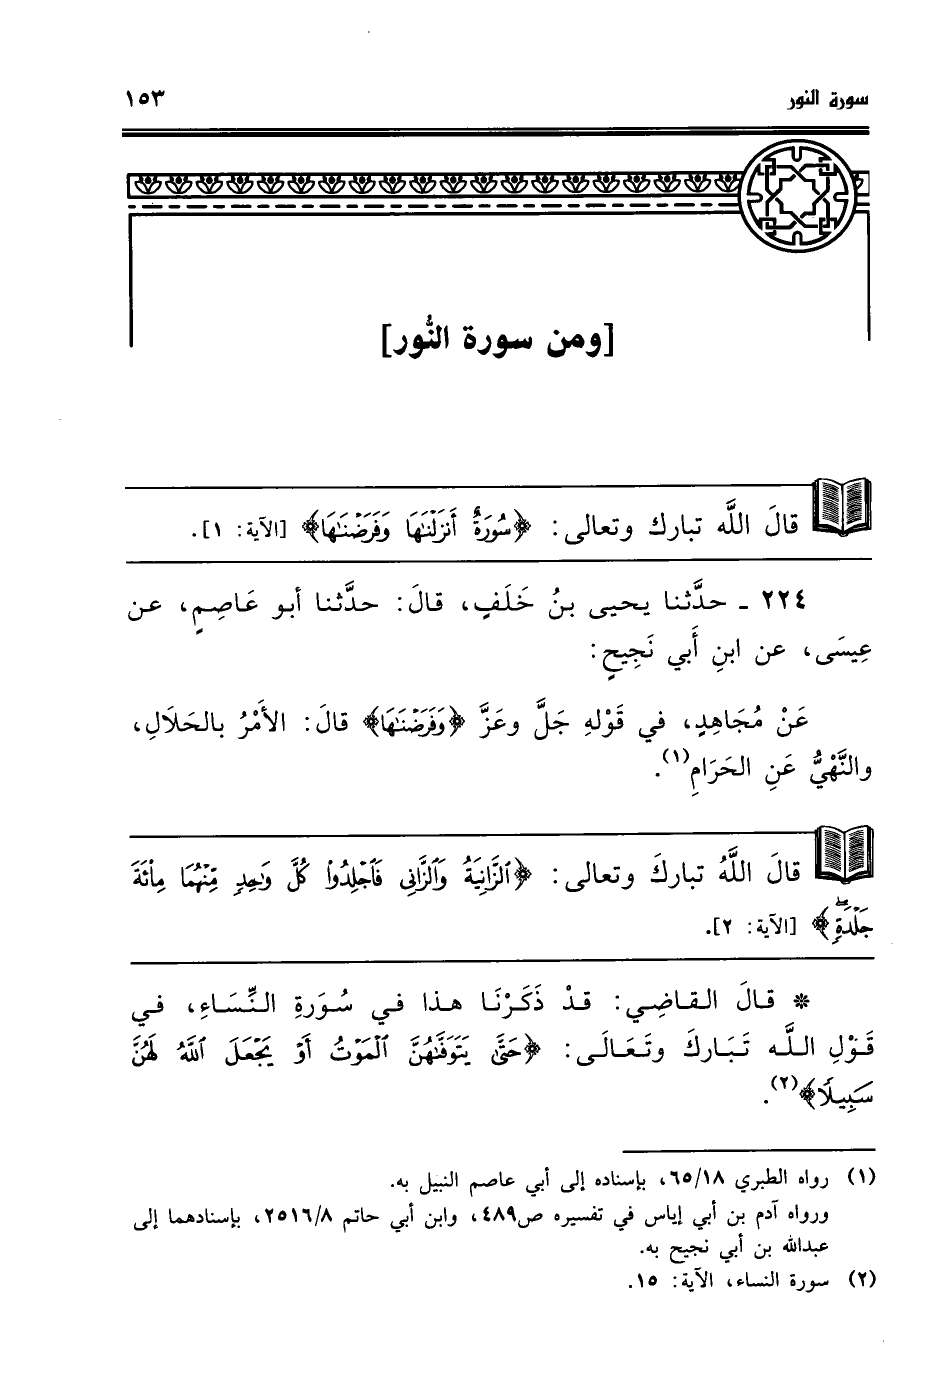 سورة النور
١٥٣
[ومن سورة النُّور]
قالَ اللَّه تبارك وتعالى: ﴿سُورَةٌ أَنزَلْنَٰهَا وَفَرَضْنَٰهَا﴾ [الآية: ١].
٢٢٤ ـ حدَّثنا يحيى بنُ خَلَفٍ، قالَ: حدَّثنا أبو عَاصِمٍ، عن
عِيسَى، عن ابنِ أَبي نَجِيحٍ:
عَنْ مُجَاهِدٍ، في قَوْلهِ جَلَّ وعَزَّ ﴿وَفَرَضْنَٰهَا﴾ قالَ: الأَمْرُ بالحَلَالِ،
والنَّهْيُّ عَنِ الحَرَامِ(١).
قالَ اللَّهُ تباركَ وتعالى: ﴿ٱلزَّانِيَةُ وَٱلزَّانِى فَٱجْلِدُوا۟ كُلَّ وَٰحِدٍ مِّنْهُمَا مِا۟ئَةَ
جَلْدَةٍۖ﴾ [الآية: ٢].
* قالَ القاضِي: قدْ ذَكَرْنَا هذا في سُورَةِ النِّسَاءِ، في
قَوْلِ اللَّه تَبَاركَ وتَعَالَى: ﴿حَتَّىٰ يَتَوَفَّىٰهُنَّ ٱلْمَوْتُ أَوْ يَجْعَلَ ٱللَّهُ لَهُنَّ
سَبِيلًا﴾(٢).
(١) رواه الطبري ٦٥/١٨، بإسناده إلى أبي عاصم النبيل به.
ورواه آدم بن أبي إياس في تفسيره ص٤٨٩، وابن أبي حاتم ٢٥١٦/٨، بإسنادهما إلى
عبدالله بن أبي نجيح به.
(٢) سورة النساء، الآية: ١٥.